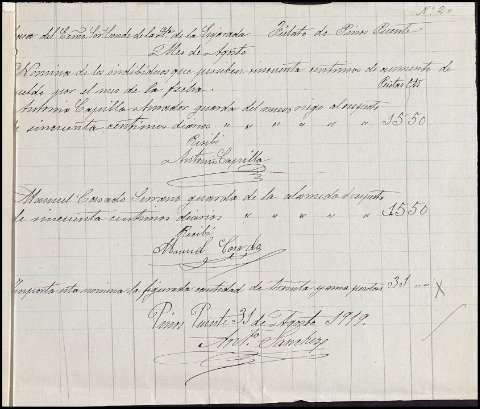 Nº 2
del Excmo Sor Conde de la de la Guarda Peloto de Pinos Puente
Mes de Agosto
Nomina de los individuos que perciben cincuenta centimos de aumento de
sueldo por el mes de la fecha. Pesetas Cts
Antonio Capilla Amador guarda del nuevo riego al respecto
de cincuenta centimos diarios " " " " " 15 50
Recibí
Antonio Capilla
Manuel Casado Serrano guarda de la alameda al respecto
de cincuenta centimos diarios " " " " 15 50
Recibí
Manuel Casado
Importa esta nomina la figurada cantidad de treinta y una pesetas 31 " "
Pinos Puente 31 de Agosto 1919.
Antº Sanchez